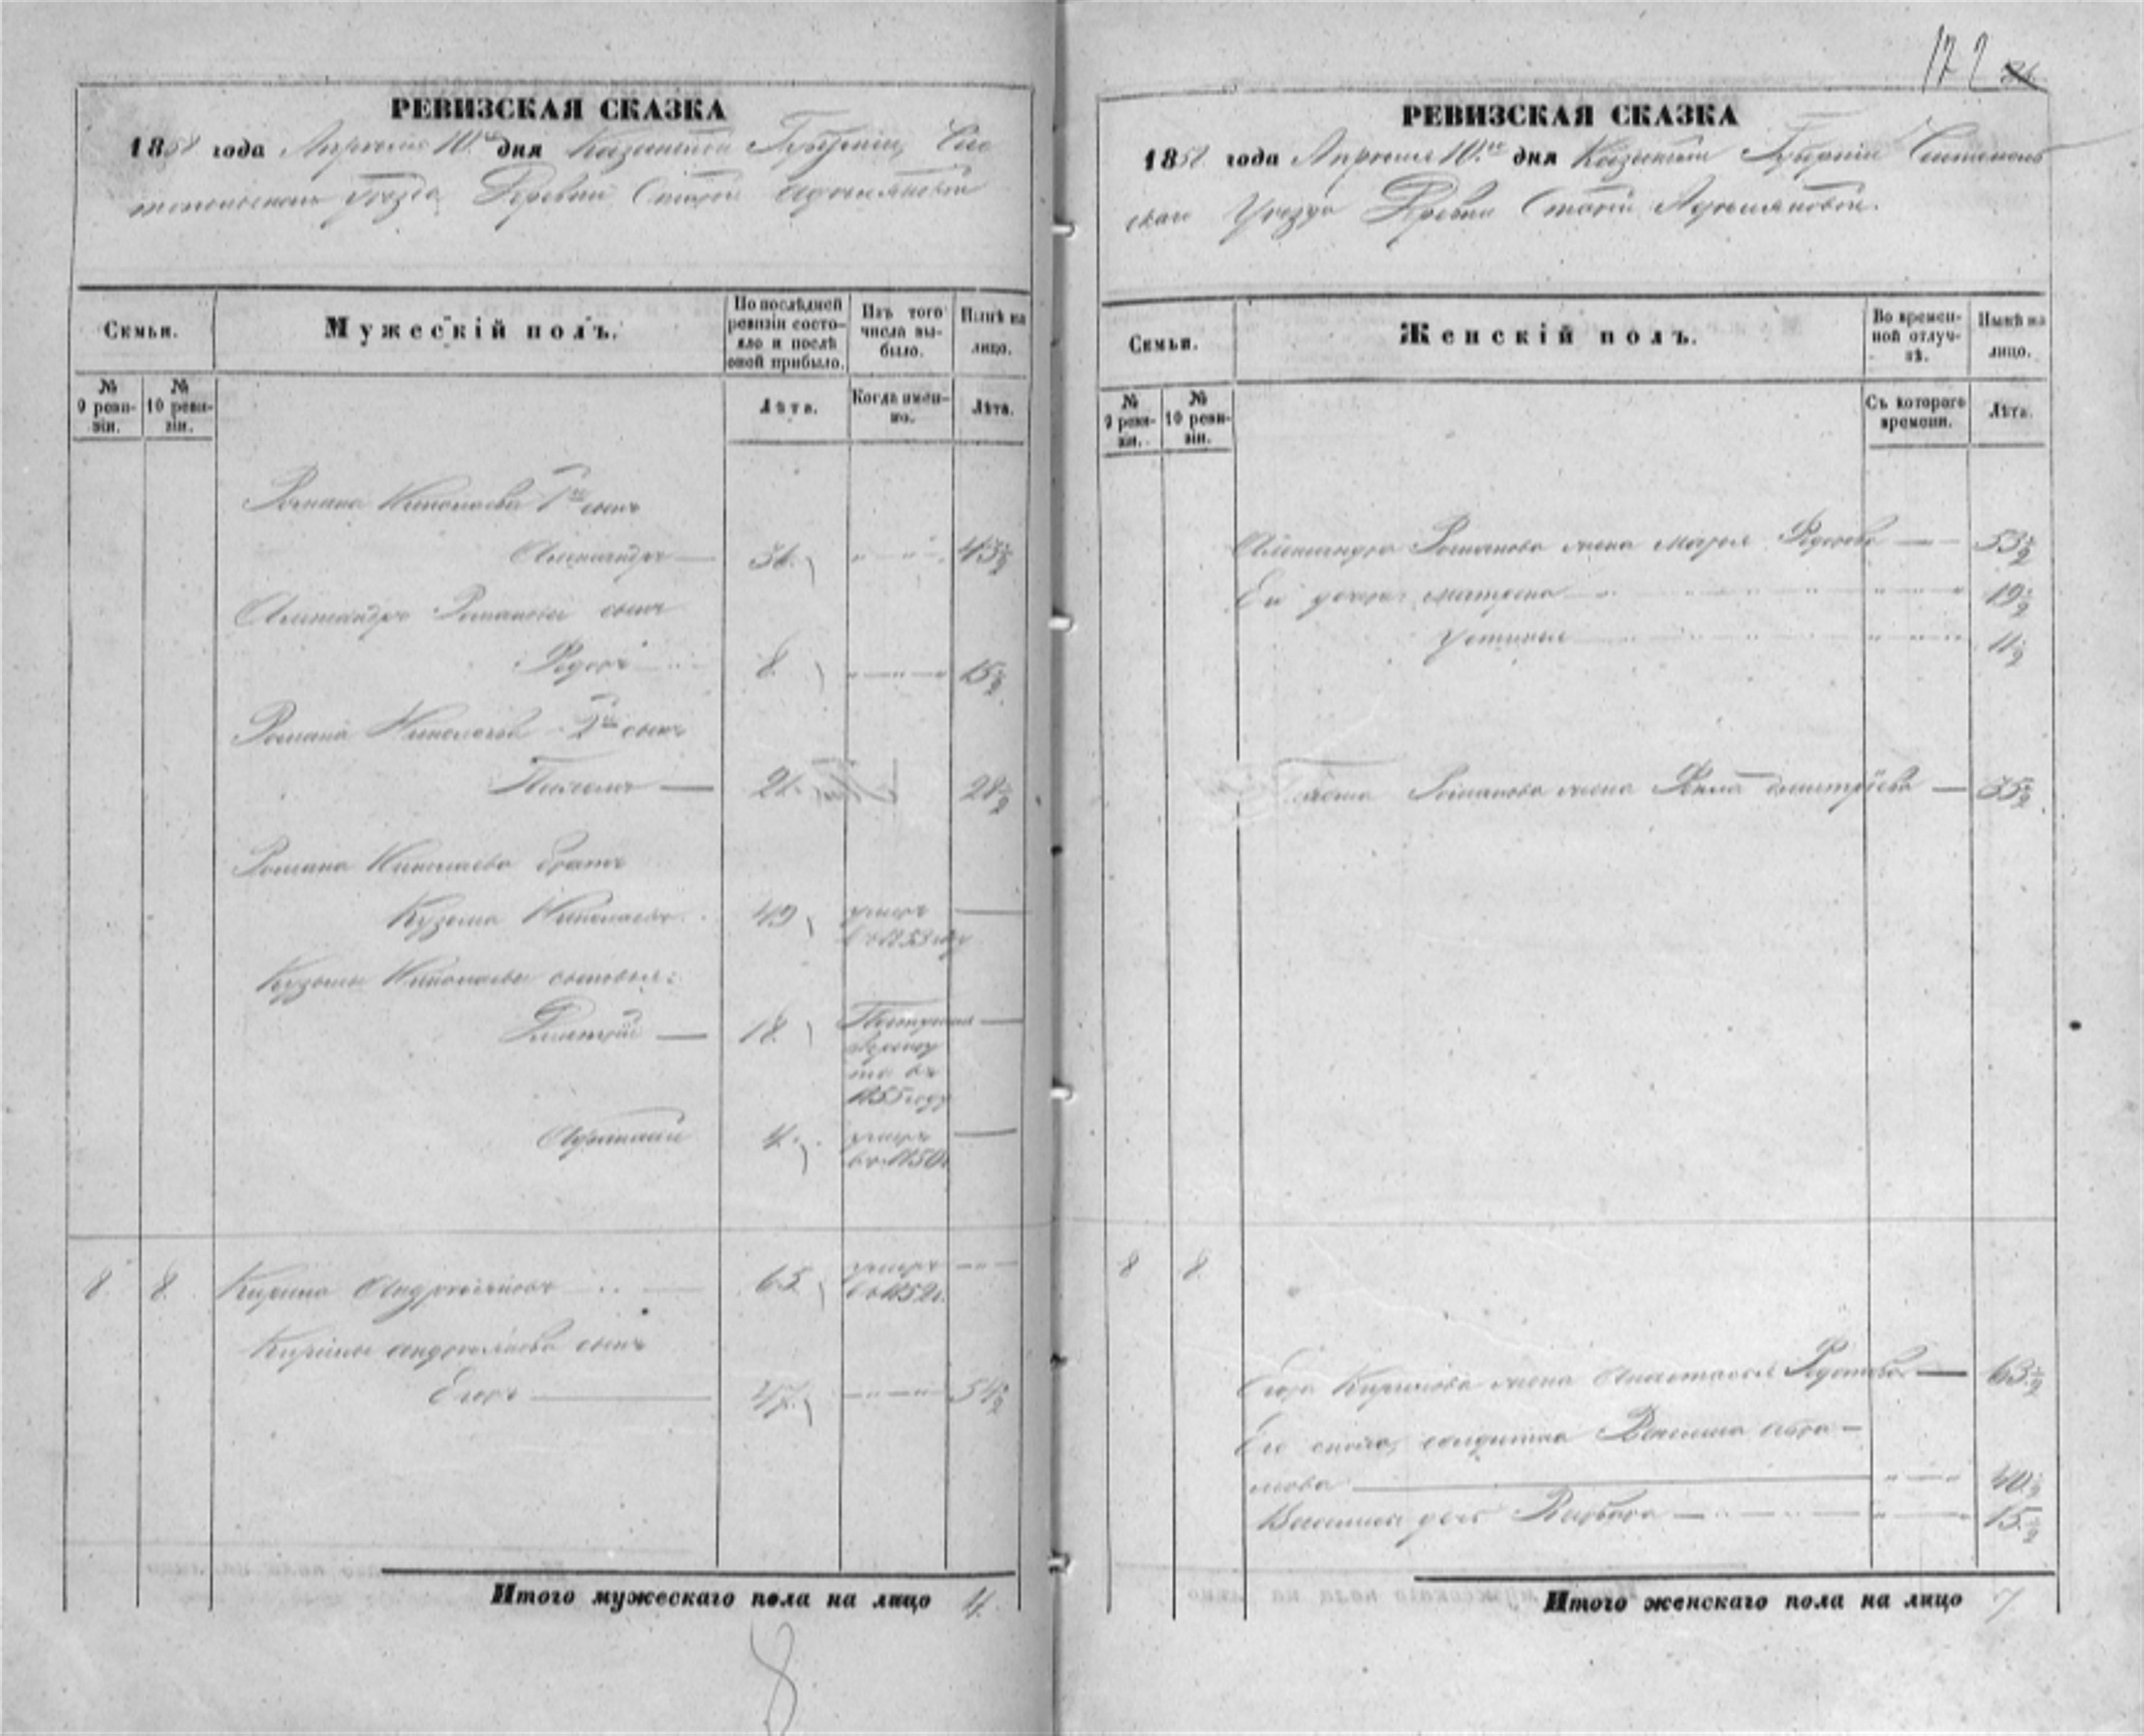 РЕВИЗСКАЯ СКАЗКА
1858 года Апреля 10го дня Казанской Губернии, Сви
Уезда Деревни Старой
Семьи.
Мужескій полъ.
По послѣдней ревизіи состояло и послѣ оной прибыло.
Изъ того числа выбыло.
Нынѣ на лицо.
№ 9 ревизіи.
№ 10 ревизіи.
Лѣта.
Когда именно.
Лѣта.
Романа Николаева 1й сынъ
Александръ — 36. 43½
Александра Романова сынъ
Федоръ 8. 15½
Романа Николаева 2й сынъ
21. 28½
Романа Николаева братъ
Кузьма Николаевъ 49 умеръ
въ 1853 году
Кузьмы Николаева сыновья:
Дмитрій — 18. Поступилъ —
въ рекру
ты въ
1855 году
4. умеръ —
въ 1850г
8 8. Кирила Андреяновъ 65 умеръ
въ 1852г.
Кирилы Андреянова сынъ
Егоръ — 47. 54½
Итого мужескаго пола на лицо 4.
8
172
РЕВИЗСКАЯ СКАЗКА
1858 года Апреля 10го дня Казанской Губерніи
скаго Уезда Деревни Старой
Семьи.
Женскій полъ.
Во временной отлучкѣ.
Нынѣ на лицо.
№ 9 ревизіи.
№ 10 ревизіи.
Съ котораго времени.
Лѣта.
Александра Романова жена Марья Федорова — 53½
Ея дочери Матрена 19½
Устинья 11½
Романова жена Дмитріева — 35½
8 8
Егора Кирилова жена Анастасья — 63½
Его сноха, солдатка Абра-
мова 40½
дочь Варвара — 15½
Итого женскаго пола на лицо 7